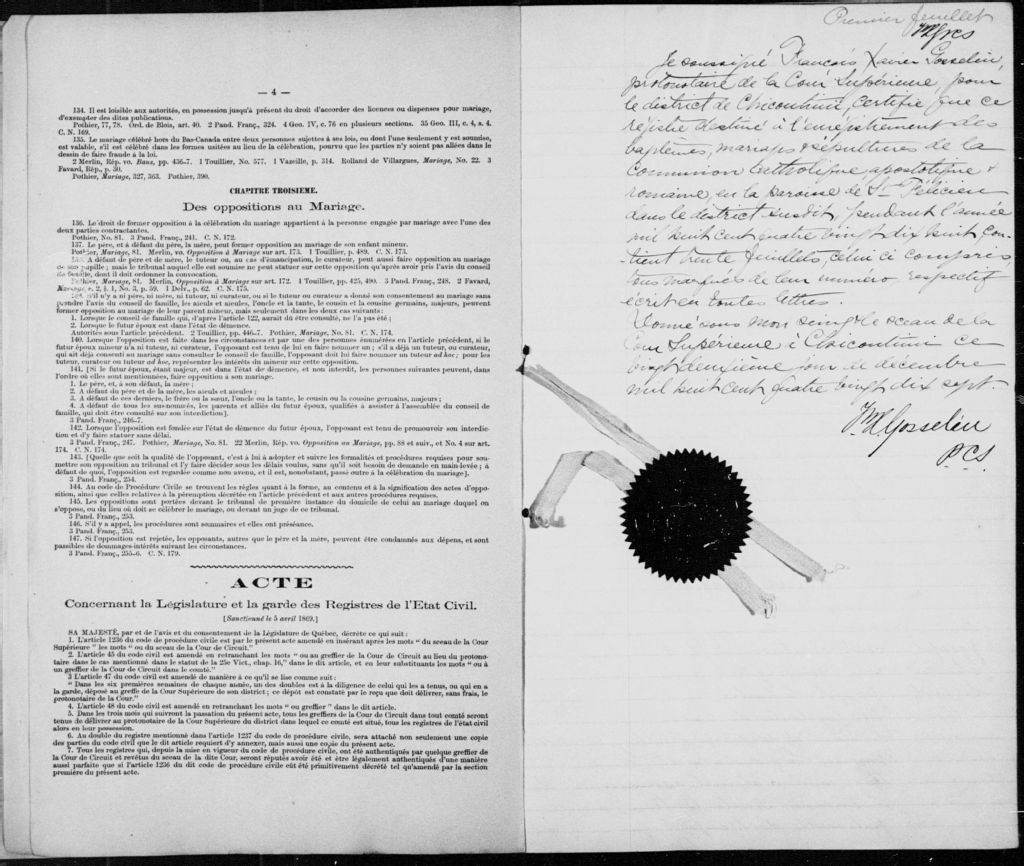 — 4 —
134. Il est loisible aux autorités, en possession jusqu'à présent du droit d'accorder des licences ou dispenses pour mariage,
d'exempter des dites publications.
Pothier, 77, 78. Ord. de Blois, art. 40. 2 Pand. Franç., 324. 4 Geo. IV, c. 76 en plusieurs sections. 35 Geo. III, c. 4, s. 4.
C. N. 169.
135. Le mariage célébré hors du Bas-Canada entre deux personnes sujettes à ses lois, ou dont l'une seulement y est soumise,
est valable, s'il est célébré dans les formes usitées au lieu de la célébration, pourvu que les parties n'y soient pas allées dans le
dessin de faire fraude à la loi.
2 Merlin, Rép. vo. Bans, pp. 436-7. 1 Touillier, No. 577. 1 Vazeille, p. 314. Rolland de Villargues, Mariage, No. 22. 3
Favard, Rép., p. 30.
Pothier, Mariage, 327, 363. Pothier, 390.
CHAPITRE TROISIEME.
Des oppositions au Mariage.
136. Le droit de former opposition à la célébration du mariage appartient à la personne engagée par mariage avec l'une des
deux parties contractantes.
Pothier, No. 81. 3 Pand. Franç., 241. C. N. 172.
137. Le père, et à défaut du père, la mère, peut former opposition au mariage de son enfant mineur.
Pothier, Mariage, 81. Merlin, vo. Opposition à Mariage sur art. 173. 1 Touillier, p. 489. C. N. 173.
A défaut de père et de mère, le tuteur ou, au cas d'émancipation, le curateur, peut aussi faire opposition au mariage
de son pupille; mais le tribunal auquel elle est soumise ne peut statuer sur cette opposition qu'après avoir pris l'avis du conseil
de famille, dont il doit ordonner la convocation.
Pothier, Mariage, 81. Merlin, Opposition à Mariage sur art. 172. 1 Touillier, pp. 425, 490. 3 Pand. Franç., 248. 2 Favard,
Mariage, s. 2, § 1, No. 3, p. 59. 1 Delv., p. 62. C. N. 175.
S'il n'y a ni père, ni mère, ni tuteur, ni curateur, ou si le tuteur ou curateur a donné son consentement au mariage sans
prendre l'avis du conseil de famille, les aïeuls et aïeules, l'oncle et la tante, le cousin et la cousine germains, majeurs, peuvent
former opposition au mariage de leur parent mineur, mais seulement dans les deux cas suivants:
1. Lorsque le conseil de famille qui, d'après l'article 122, aurait dû être consulté, ne l'a pas été;
2. Lorsque le futur époux est dans l'état de démence.
Autorités sous l'article précédent. 2 Touillier, pp. 446-7. Pothier, Mariage, No. 81. C. N. 174.
140. Lorsque l'opposition est faite dans les circonstances et par une des personnes énumérées en l'article précédent, si le
futur époux mineur n'a ni tuteur, ni curateur, l'opposant est tenu de lui en faire nommer un; s'il a déjà un tuteur, ou curateur,
qui ait déjà consenti au mariage sans consulter le conseil de famille, l'opposant doit lui faire nommer un tuteur ad hoc; pour les
tuteur, curateur ou tuteur ad hoc, représenter les intérêts du mineur sur cette opposition.
141. [Si le futur époux, étant majeur, est dans l'état de démence, et non interdit, les personnes suivantes peuvent, dans
l'ordre où elles sont mentionnées, faire opposition à son mariage.
1. Le père, et, à son défaut, la mère;
2. A défaut du père et de la mère, les aïeuls et aïeules;
3. A défaut de ces derniers, le frère ou la sœur, l'oncle ou la tante, le cousin ou la cousine germains, majeurs;
4. A défaut de tous les sus-nommés, les parents et alliés du futur époux, qualifiés à assister à l'assemblée du conseil de
famille, qui doit être consulté sur son interdiction].
3 Pand. Franç., 246-7.
142. Lorsque l'opposition est fondée sur l'état de démence du futur époux, l'opposant est tenu de promouvoir son interdic-
tion et d'y faire statuer sans délai.
3 Pand. Franç., 247. Pothier, Mariage, No. 81. 22 Merlin, Rép. vo. Opposition au Mariage, pp. 88 et suiv., et No. 4 sur art.
174. C. N. 174.
143. [Quelle que soit la qualité de l'opposant, c'est à lui à adopter et suivre les formalités et procédures requises pour sou-
mettre son opposition au tribunal et l'y faire décider sous les délais voulus, sans qu'il soit besoin de demande en main-levée; à
défaut de quoi, l'opposition est regardée comme non avenu, et il est, nonobstant, passé outre à la célébration du mariage].
3 Pand. Franç., 254.
144. Au code de Procédure Civile se trouvent les règles quant à la forme, au contenu et à la signification des actes d'oppo-
sition, ainsi que celles relatives à la péremption décrétée en l'article précédent et aux autres procédures requises.
145. Les oppositions sont portées devant le tribunal de première instance du domicile de celui au mariage duquel on
s'oppose, ou du lieu où doit se célébrer le mariage, ou devant un juge de ce tribunal.
3 Pand. Franç., 253.
146. S'il y a appel, les procédures sont sommaires et elles ont préséance.
3 Pand. Franç., 253.
147. Si l'opposition est rejetée, les opposants, autres que le père et la mère, peuvent être condamnés aux dépens, et sont
passibles de dommages-intérêts suivant les circonstances.
3 Pand. Franç., 255-6. C. N. 179.
ACTE
Concernant la Législature et la garde des Registres de l'Etat Civil.
[Sanctionné le 5 avril 1869.]
SA MAJESTÉ, par et de l'avis et du consentement de la Législature de Québec, décrète ce qui suit:
1. L'article 1236 du code de procédure civile est par le présent acte amendé en insérant après les mots " du sceau de la Cour
Supérieure " les mots " ou du sceau de la Cour de Circuit."
2. L'article 45 du code civil est amendé en retranchant les mots " ou au greffier de la Cour de Circuit au lieu du protono-
taire dans le cas mentionné dans le statut de la 25e Vict., chap. 16," dans le dit article, et en leur substituants les mots " ou à
un greffier de la Cour de Circuit dans le comté."
3 L'article 47 du code civil est amendé de manière à ce qu'il se lise comme suit:
" Dans les six premières semaines de chaque année, un des doubles est à la diligence de celui qui les a tenus, ou qui en a
la garde, déposé au greffe de la Cour Supérieure de son district; ce dépôt est constaté par le reçu que doit délivrer, sans frais, le
protonotaire de la Cour."
4. L'article 48 du code civil est amendé en retranchant les mots " ou greffier " dans le dit article.
5. Dans les trois mois qui suivront la passation du présent acte, tous les greffiers de la Cour de Circuit dans tout comté seront
tenus de délivrer au protonotaire de la Cour Supérieure du district dans lequel ce comté est situé, tous les registres de l'état civil
alors en leur possession.
6. Au double du registre mentionné dans l'article 1237 du code de procédure civile, sera attaché non seulement une copie
des parties du code civil que le dit article requiert d'y annexer, mais aussi une copie du présent acte.
7. Tous les registres qui, depuis la mise en vigueur du code de procédure civile, ont été authentiqués par quelque greffier de
la Cour de Circuit et revêtus du sceau de la dite Cour, seront réputés avoir été et être légalement authentiqués d'une manière
aussi parfaite que si l'article 1236 du dit code de procédure civile eût été primitivement décrété tel qu'amendé par la section
première du présent acte.
Premier feuillet
Je soussigné François Xavier Gosselin,
protonotaire de la Cour Supérieure, pour
le district de Chicoutimi, certifie que ce
régistre destiné à l'enrégistrement des
baptêmes, mariages & sépultures de la
communion catholique apostolique &
romaine, en la paroisse de St Félicien
dans le district susdit, pendant l'année
mil huit cent quatre vingt dix huit con-
tient trente feuillets, celui ci compris
tous marqués de leur numéro respectif
écrit en toutes lettres.
Donné sous mon seing & le sceau de la
Cour Supérieure à Chicoutimi ce
vingt deuxième jour de décembre
mil huit cent quatre vingt dix sept -
F. X. Gosselin
P.C.S.